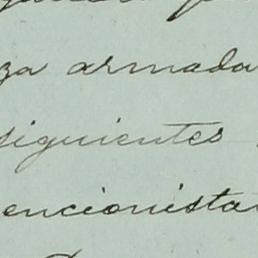 za armada
siguientes
encionista